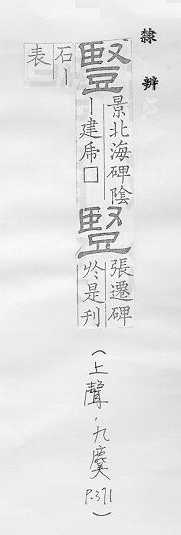 隸辨
豎
景北海碑陰
丨建□
豎
張遷碑
於是刊
石丨
表
(上聲.九麌 P.371)